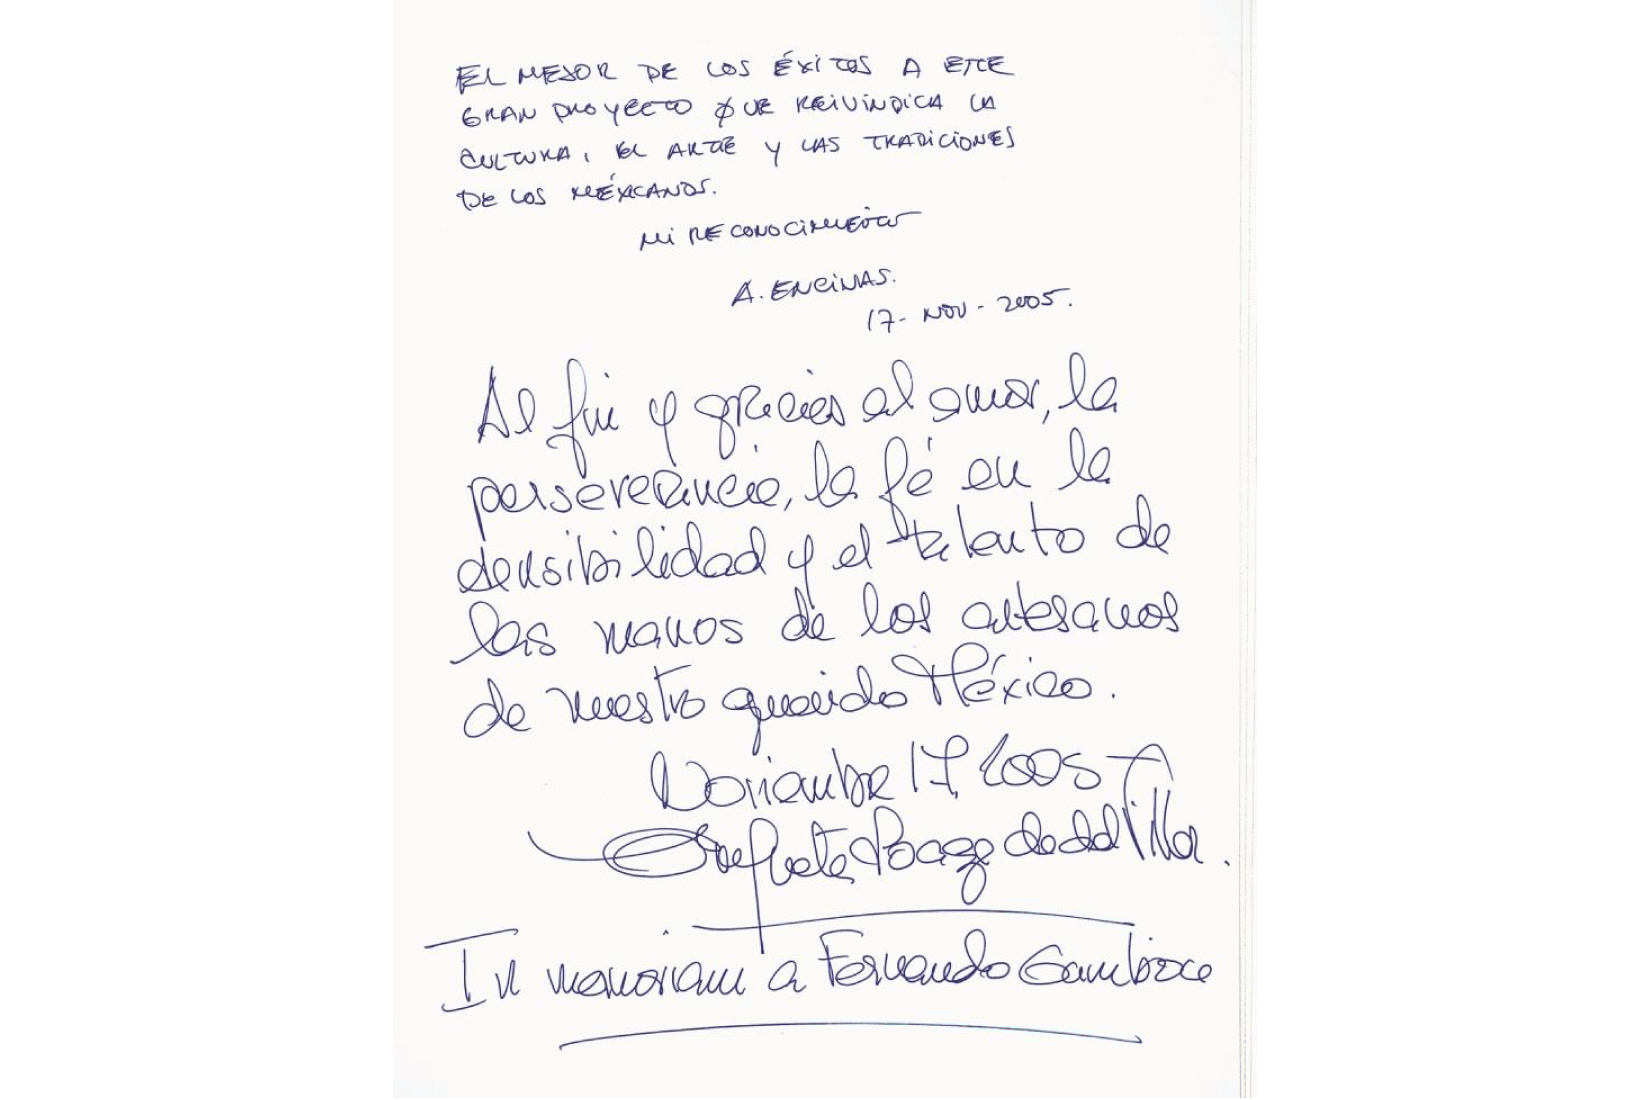 EL MEJOR DE LOS ÉXITOS A ESTE
GRAN PROYECTO QUE REIVINDICA LA
CULTURA, EL ARTE Y LAS TRADICIONES
DE LOS MÉXICANOS.
MI RECONOCIMIENTO
A. ENCINAS.
17- NOV - 2005.
Al fin y gracias al amor, la
perseverancia, la fé en la
sensibilidad y el talento de
las manos de los artesanos
de nuestro querido México.
Noviembre 17, 2005
de del Villar.
In memoriam a Fernando Gamboa